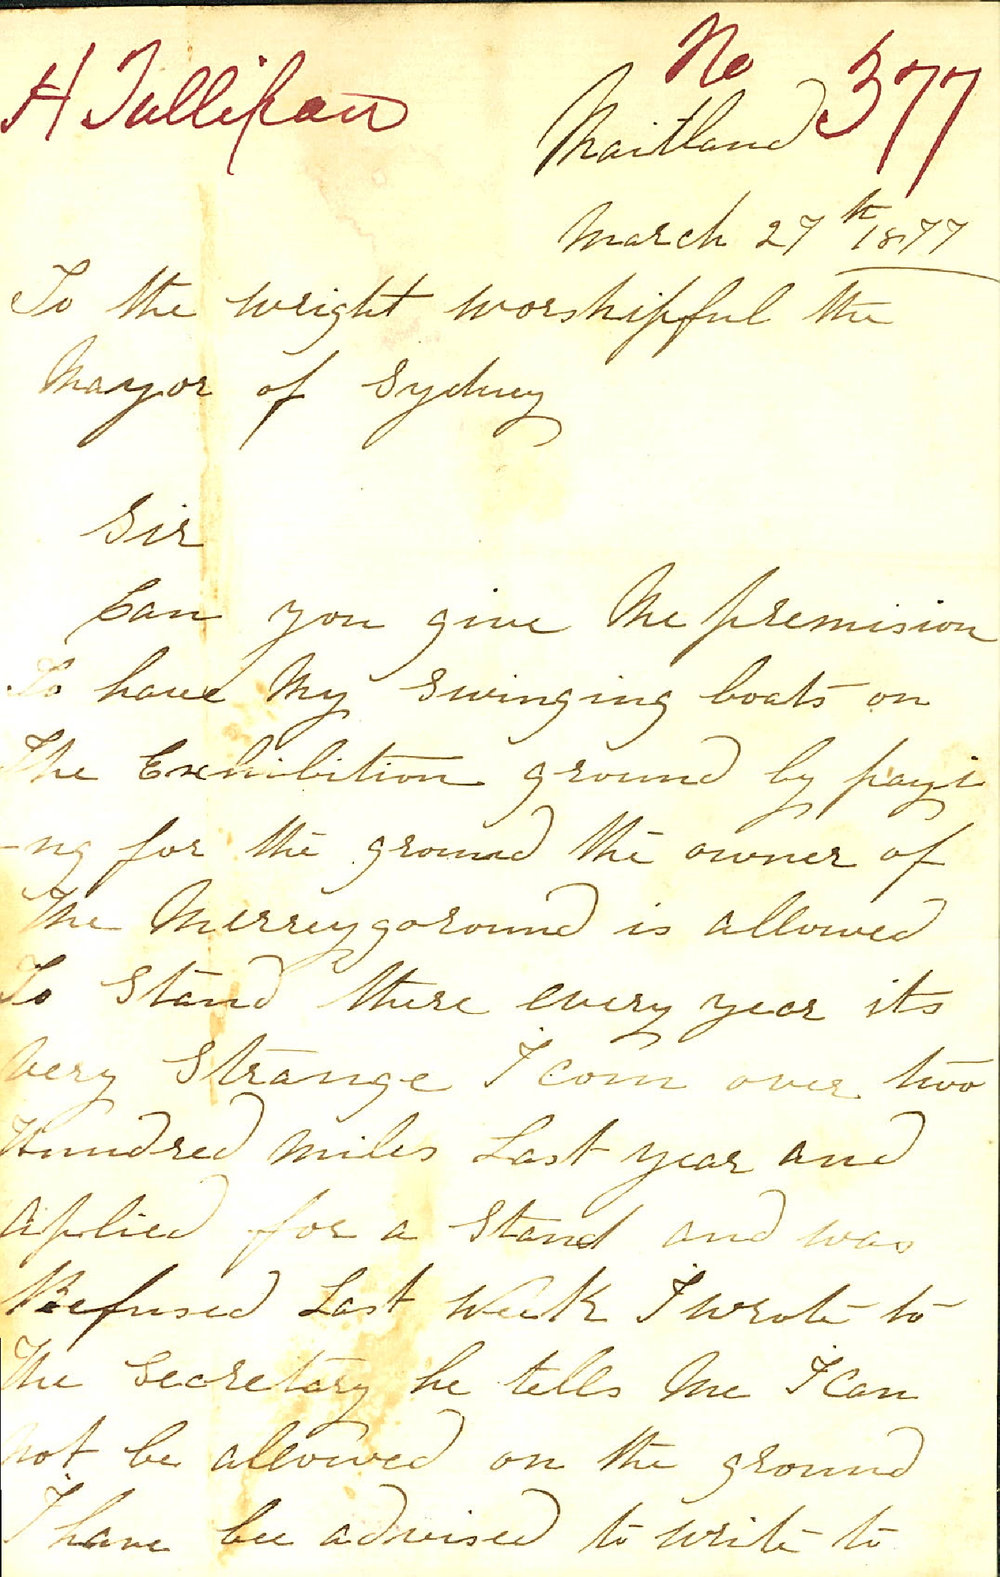 H Tullipan
No 377
Maitland
March 27th 1877
To the wright worshipful the
Mayor of Sydney
Sir
Can you give Me premision
To have My Swinging boats on
The Exhibition ground by payi
-ng for the ground the owner of
The Merreygoround is allowed
To Stand there every year its
very Strange I com over two
Hundred miles Last year and
Aplied for a Stand and was
Refused Last Week I wrote to
The Secretary he tells Me I Can
not be allowed on the ground
I have bee advised to write to